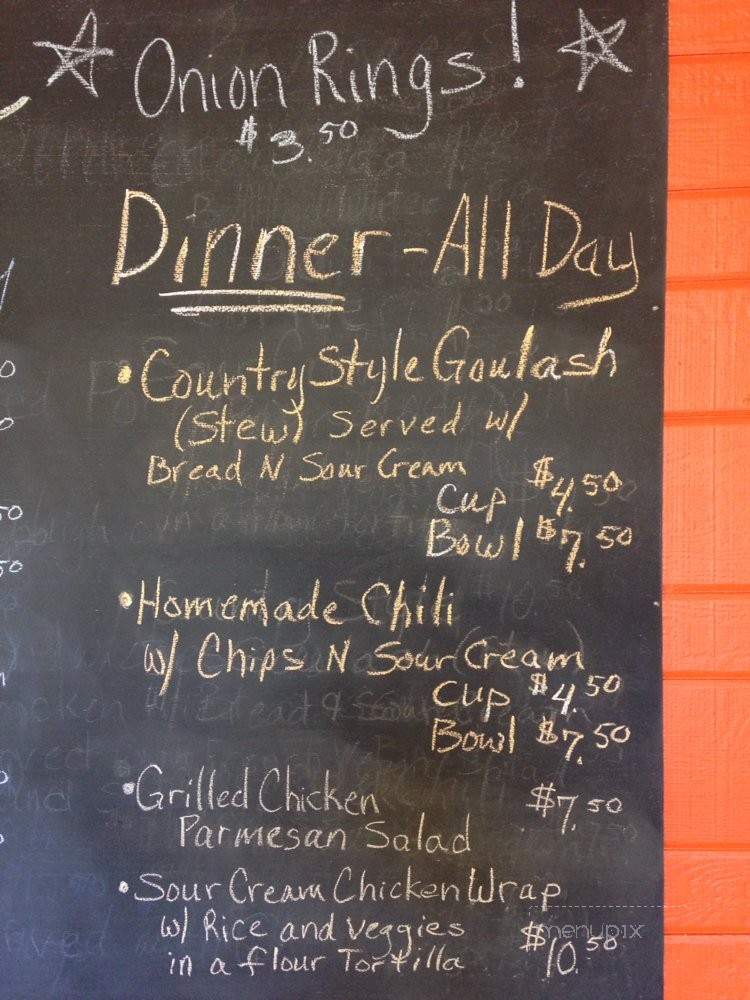 Onion Rings!
$3.50
Dinner - All Day
• Country Style Goulash
(Stew) Served w/
Bread N Sour Cream
Cup $4.50
Bowl $7.50
• Homemade Chili
w/ Chips N Sour Cream
Cup $4.50
Bowl $7.50
• Grilled Chicken $7.50
Parmesan Salad
• Sour Cream Chicken Wrap
w/ Rice and veggies $10.50
in a flour Tortilla
menupix